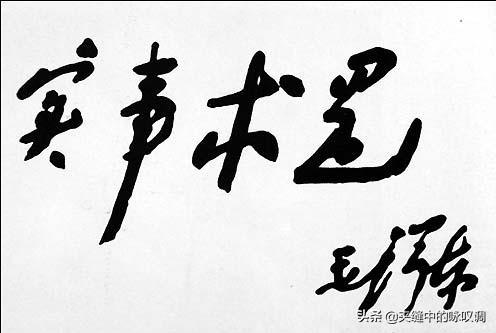 實事求是
毛泽东
头条 @夹缝中的咏叹调